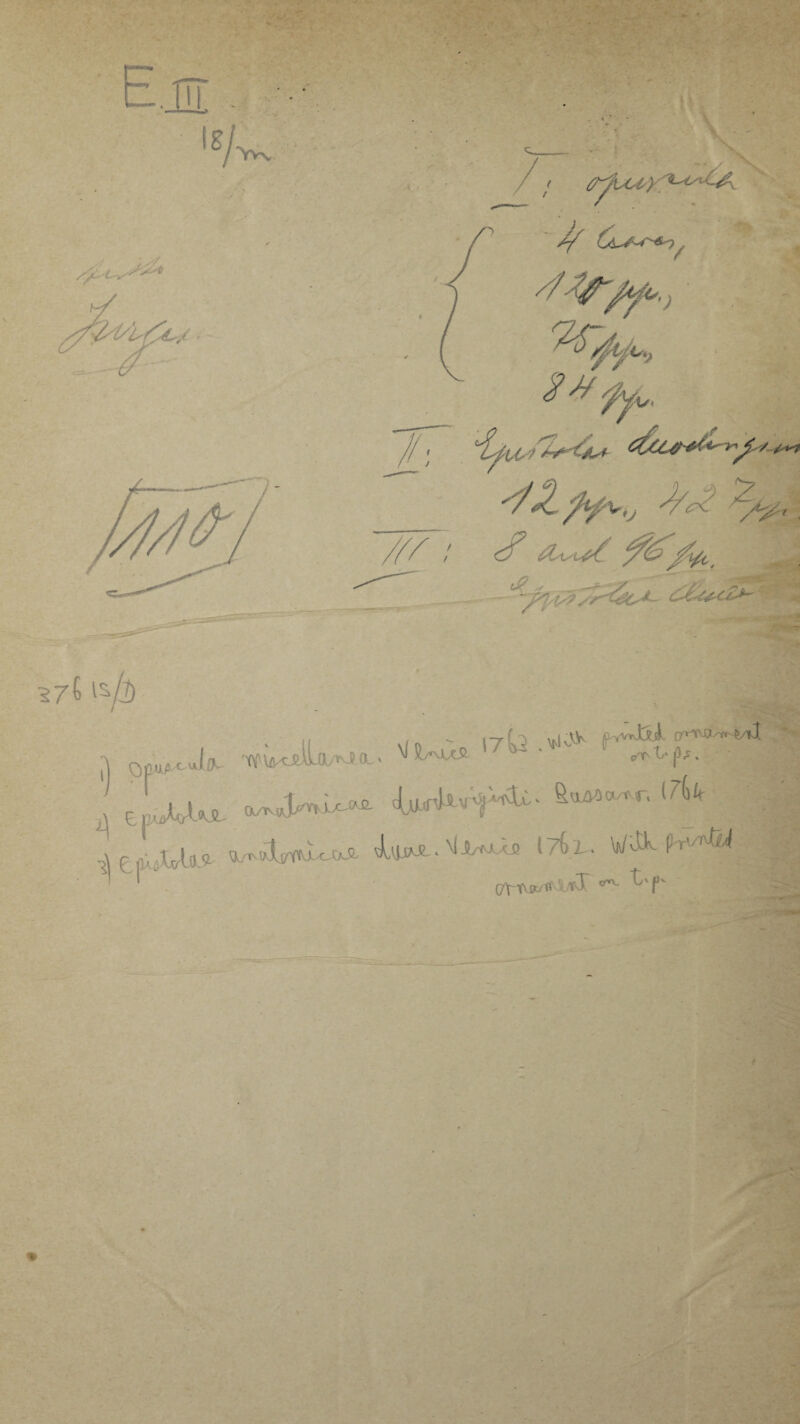 E.III.
18/m
I: opuscula
4 leaves,
120 pp.,
75 pp.,
84 pp.
II: Epistolae
12 pp., 427 pp.
III: 8 and 96 pp.
Epistolae duae
/110/
376 15/D
1) Opuscula miscellanea. Venice 1763. With printed ornament
on t.ps.
2) Epistolae anatomicae duodeviginti. Bassano, 1764
3) Epistolae anatomicae duae. Venice 1762. With printed
ornament on t.p.